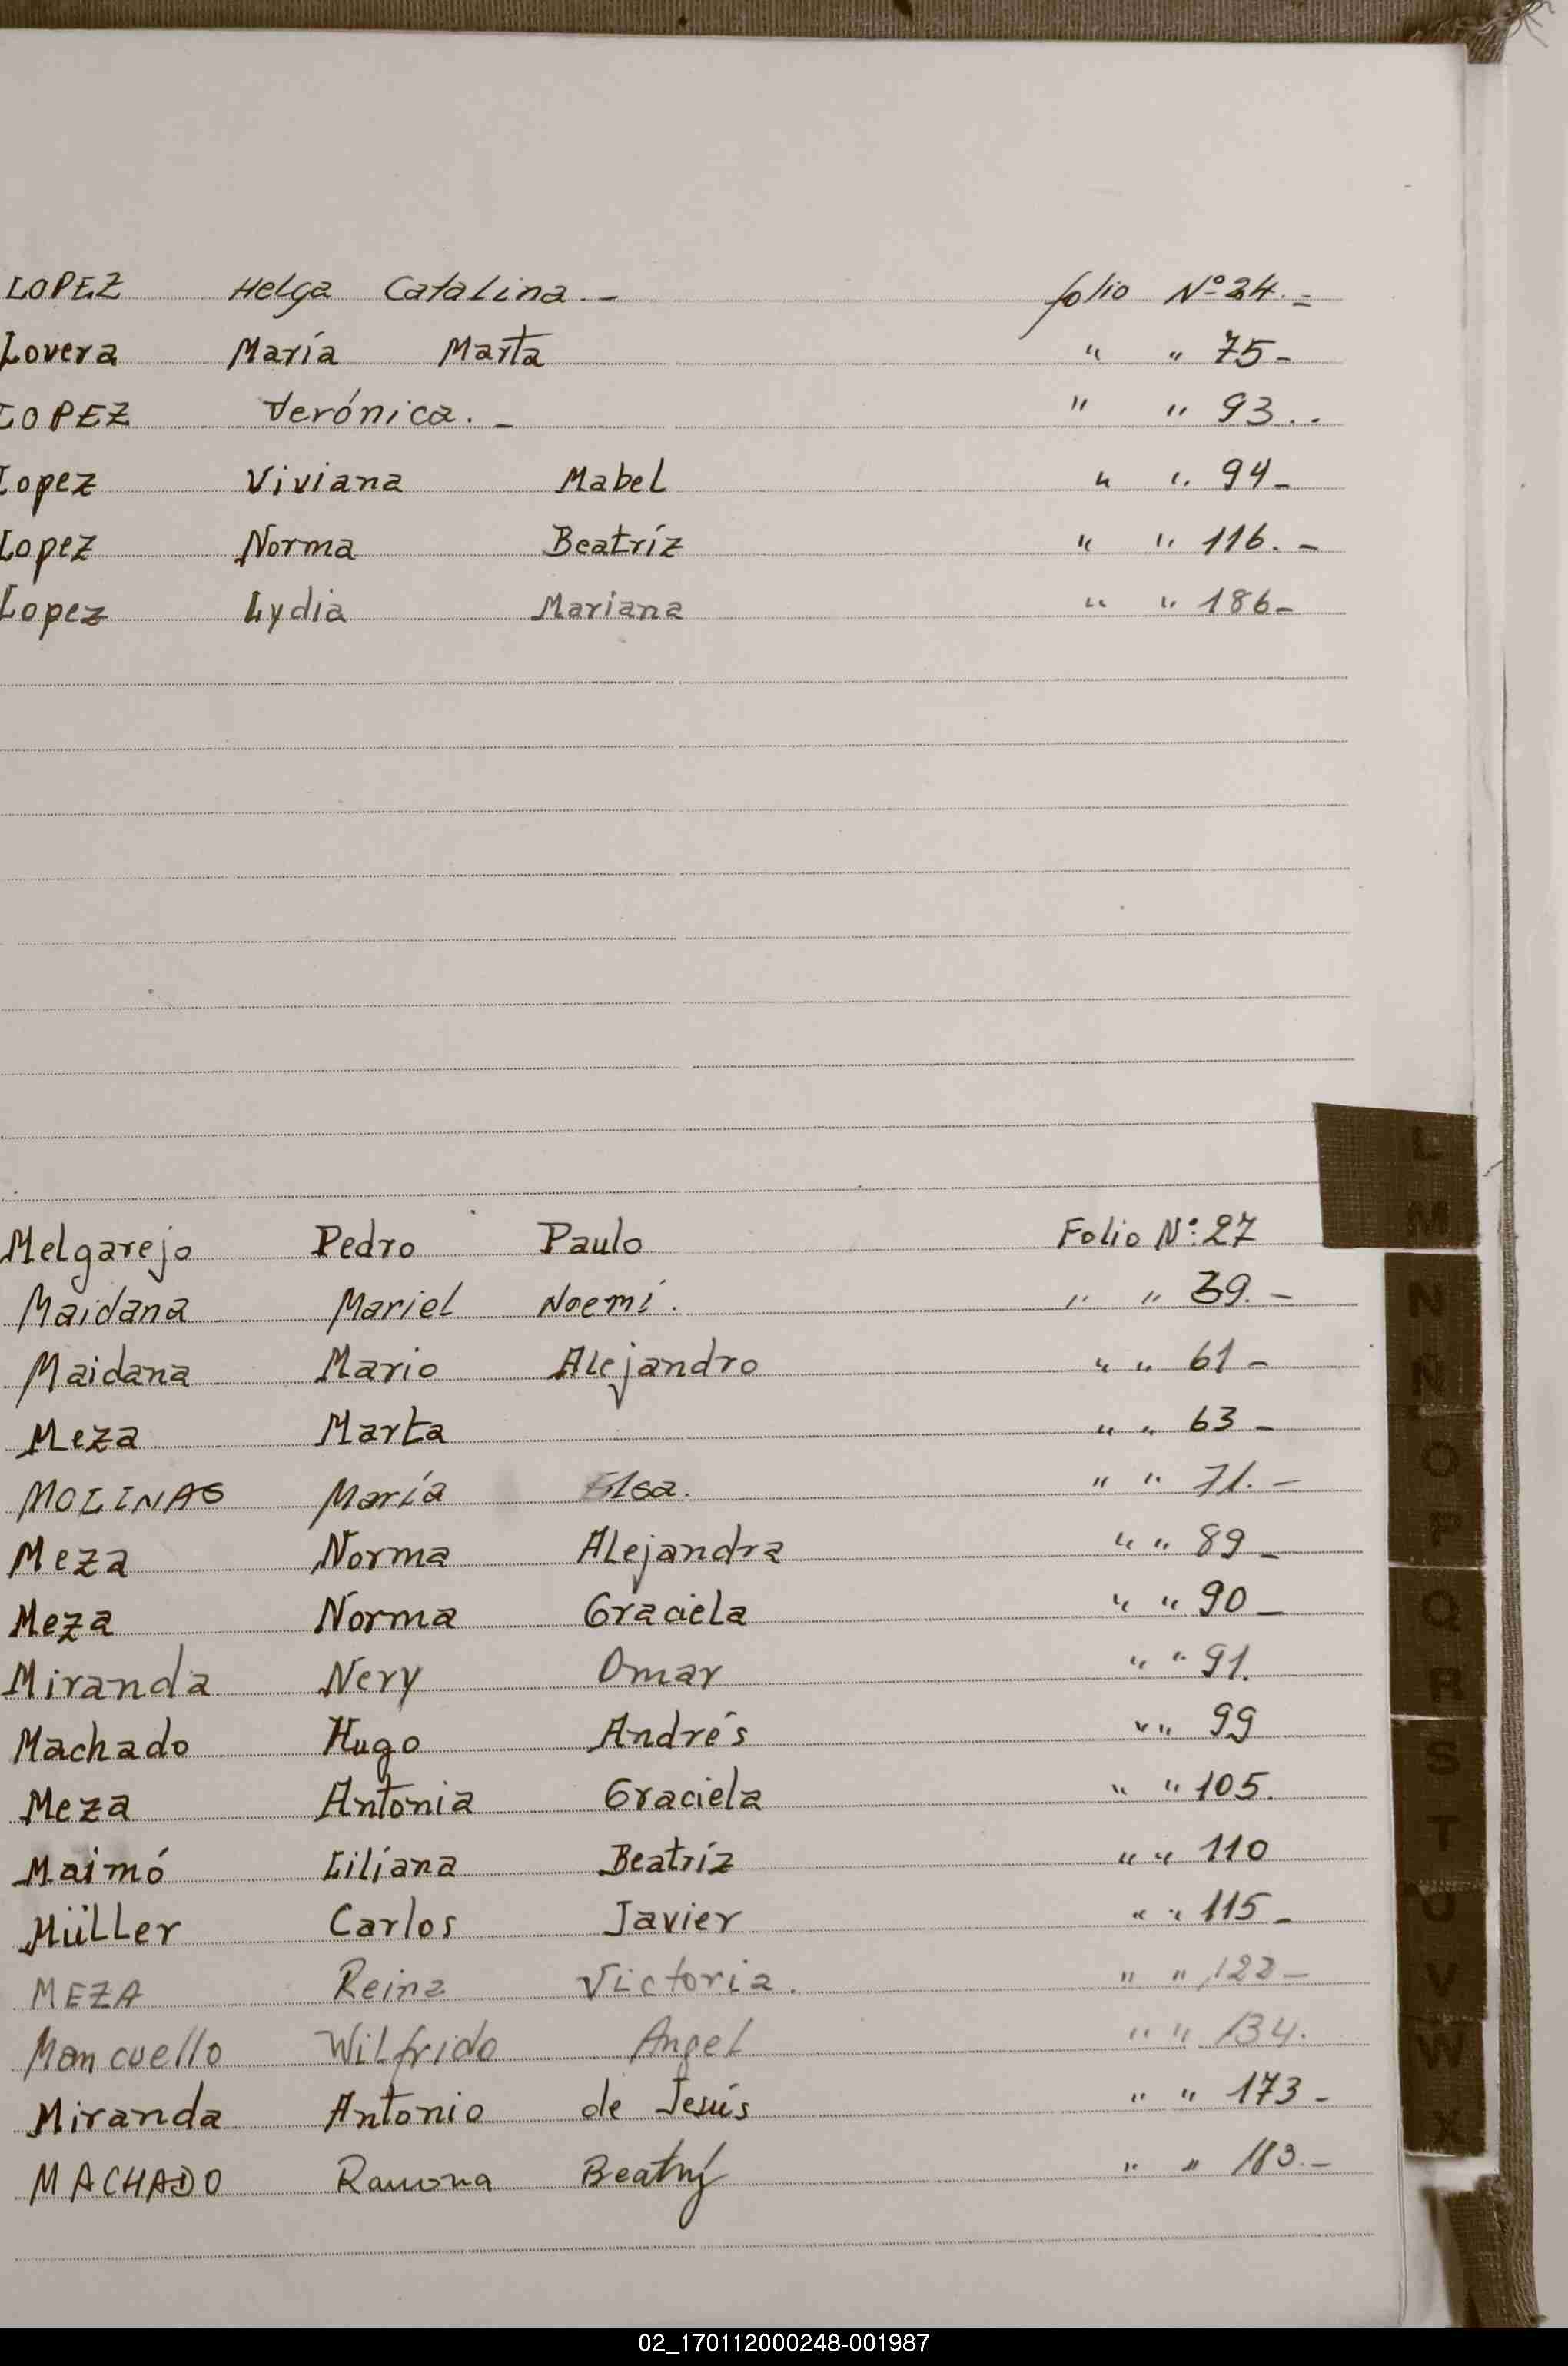 LOPEZ Helga Catalina.- folio Nº 24.=
Lovera María Marta " " 75-
LOPEZ Verónica.- " " 93..
Lopez Viviana Mabel " " 94-
Lopez Norma Beatríz " " 116.-
Lopez Lydia Mariana " " 186-
L
M
Melgarejo Pedro Paulo Folio Nº: 27
Maidana Mariel Noemí. " " 39.-
Maidana Mario Alejandro " " 61-
Meza Marta " " 63-
MOLINAS María Elsa. " " 71.-
Meza Norma Alejandra " " 89-
Meza Norma Graciela " " 90-
Miranda Nery Omar " " 91.
Machado Hugo Andrés " " 99
Meza Antonia Graciela " " 105.
Maimó Liliana Beatríz " " 110
Müller Carlos Javier " " 115-
MEZA Reina Victoria. " " 122-
Mancuello Wilfrido Angel " " 134.
Miranda Antonio de Jesús " " 173-
MACHADO Ramona Beatríz " " 183.-
N
Ñ
O
P
Q
R
S
T
U
V
W
X
02_170112000248-001987